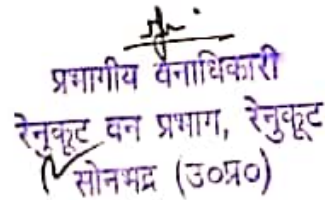 प्रभागीय वनाधिकारी
रेनुकूट वन प्रभाग, रेनुकूट
सोनभद्र (उ०प्र०)